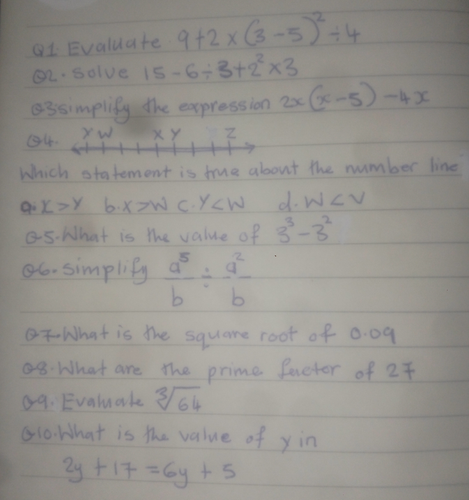 Q1. Evaluate 9+2×(3-5)²÷4
Q2. Solve 15-6÷3+2²×3
Q3 simplify the expression 2x(x-5)-4x
Q4. Y W X Y Z
Which statement is true about the number line
a. X>Y b. X>W c. Y<W d. W<V
Q5. What is the value of 3³-3²
Q6. simplify a⁵/b ÷ a²/b
Q7. What is the square root of 0.09
Q8. What are the prime facter of 27
Q9. Evaluate ∛64
Q10. What is the value of y in
2y+17=6y+5